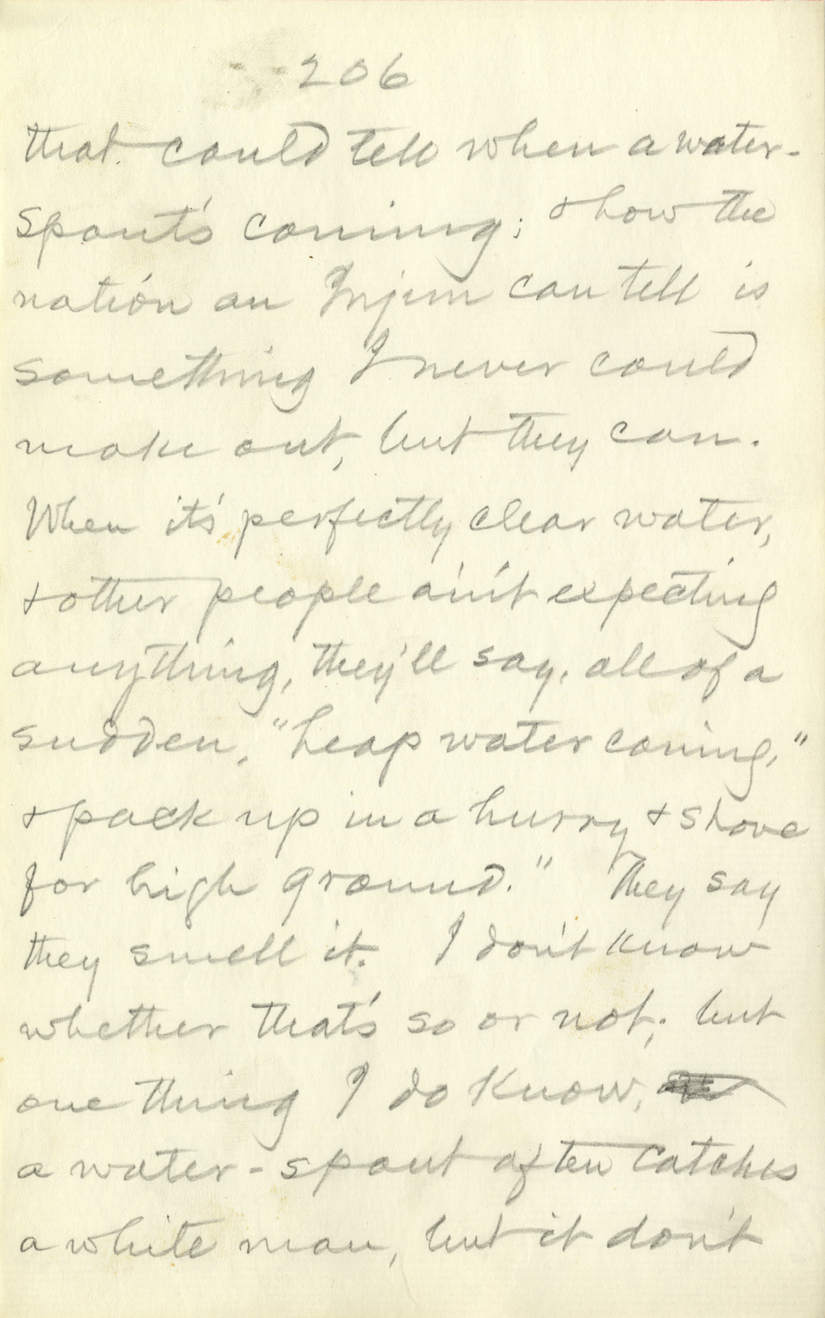 206
that could tell when a water-
spout's coming; & how the
nation an Injun can tell is
something I never could
make out, but they can.
When it's perfectly clear water,
& other people ain't expecting
anything, they'll say, all of a
sudden, "heap water coming,"
& pack up in a hurry & shove
for high ground." They say
they smell it. I don't know
whether that's so or not; but
one thing I do know,
a water-spout often catches
a white man, but it don't